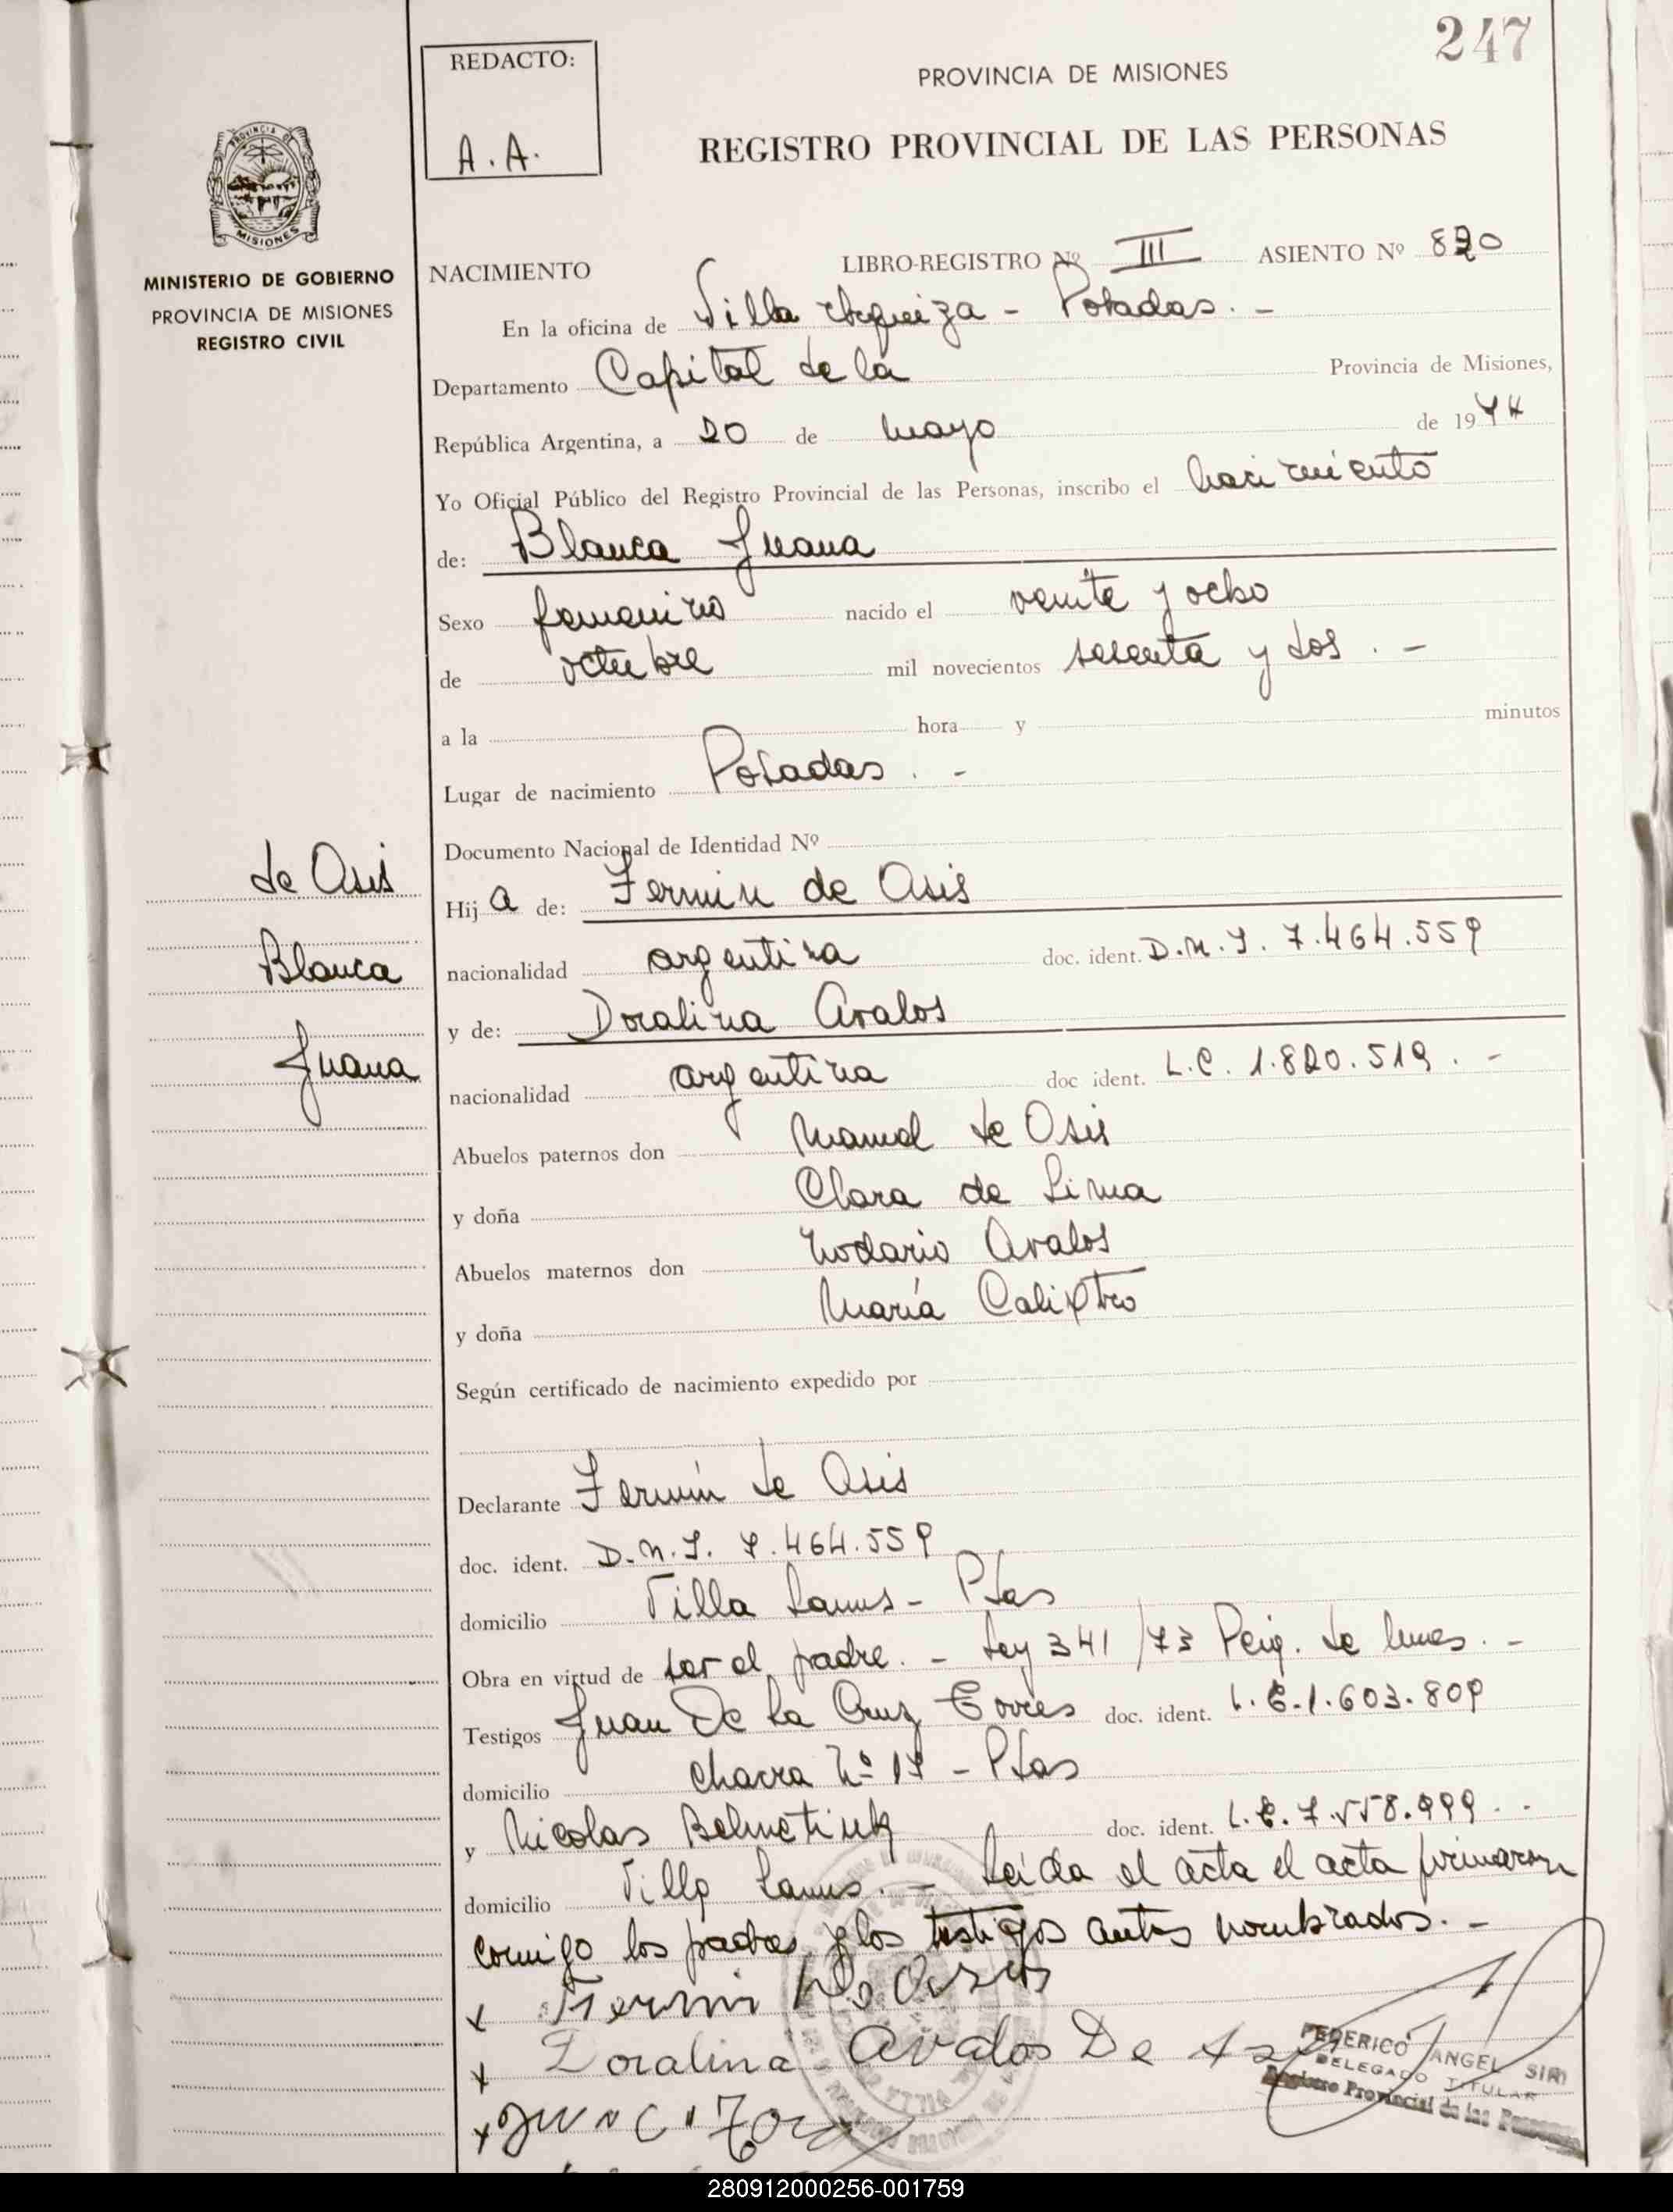 247
REDACTO:
A.A.
PROVINCIA DE MISIONES
REGISTRO PROVINCIAL DE LAS PERSONAS
PROVINCIA DE
MISIONES
MINISTERIO DE GOBIERNO
PROVINCIA DE MISIONES
REGISTRO CIVIL
NACIMIENTO LIBRO-REGISTRO Nº III ASIENTO Nº 820
En la oficina de Villa Posadas. -
Departamento Capital de la Provincia de Misiones,
República Argentina, a 20 de mayo de 1974
Yo Oficial Público del Registro Provincial de las Personas, inscribo el nacimiento
de: Blanca Juana
Sexo femenino nacido el veinte y ocho
de octubre mil novecientos sesenta y dos. -
a la hora y minutos
Lugar de nacimiento Posadas. -
Documento Nacional de Identidad Nº
de Asis
Blanca
Juana
Hija de: Fermin de Asis
nacionalidad argentina doc. ident. D.N.I. 7.464.559
y de: Doralina Avalos
nacionalidad argentina doc ident. L.C. 1.820.519. -
Abuelos paternos don Manuel de Asis
y doña Clara de Lima
Abuelos maternos don Avalos
y doña María Calixtro
Según certificado de nacimiento expedido por
Declarante Fermín de Asis
doc. ident. D.N.I. 7.464.559
domicilio Villa Lanus - Pdas
Obra en virtud de ser el padre. - Ley 341/73 de
Testigos Juan De la Cruz Torres doc. ident. L.E. 1.603.809
domicilio chacra Nº 17 - Pdas
y Nicolas doc. ident. L.E. 7.558.999. -
domicilio Villa Lanus. - Leída el acta el acta firmaron
comigo los padres y los testigos antes nombrados. -
x Fermin De Assis
x Doralina Avalos De
x
FEDERICO ANGEL SIRI
DELEGADO TITULAR
Registro Provincial de las Personas
280912000256-001759